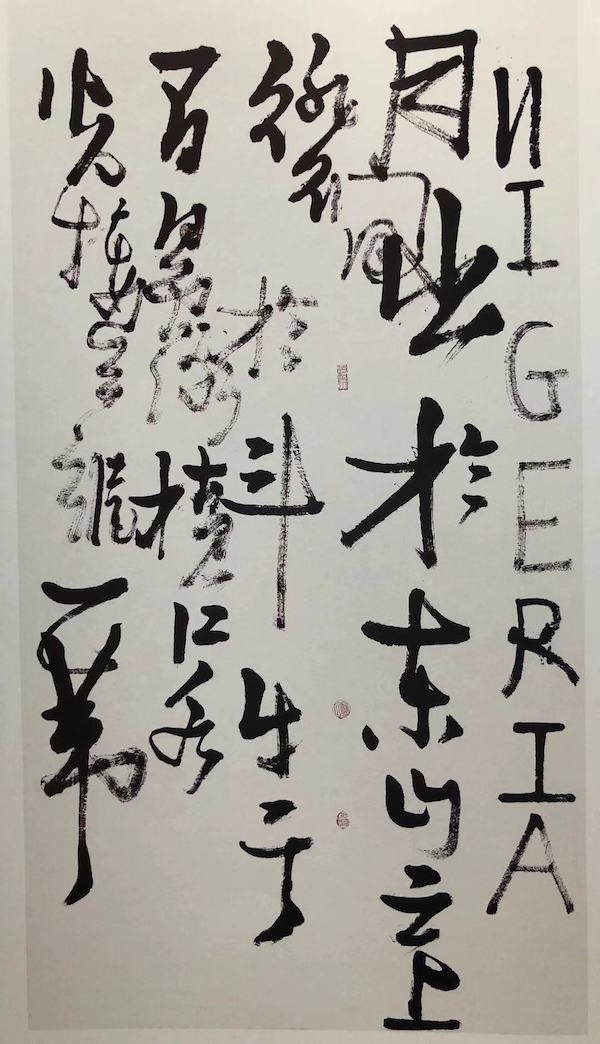 NIGERIA
月出於东山之上
徘徊於斗牛之
间白露横江水
光接天縱一葦